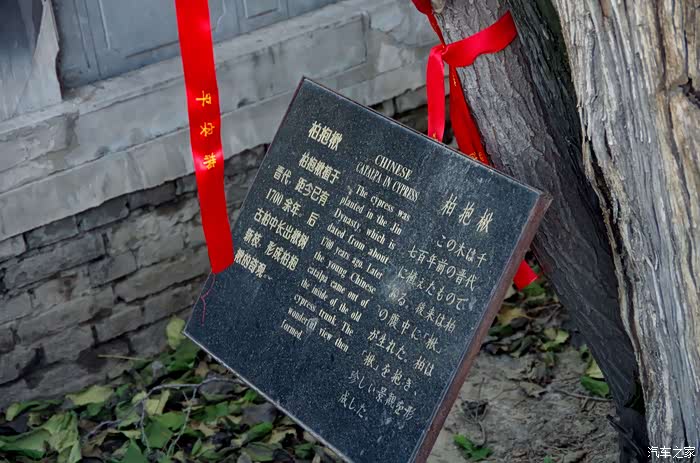 平安
柏抱楸
柏抱楸植于
晋代，距今已有
1700余年，后
古柏中长出楸树
新枝，形成柏抱
楸的奇观。
CHINESE
CATALPA IN CYPRESS
The cypress was
planted in the Jin
Dynasty, which is
dated from about
1700 years ago. Later
the young Chinese
catalpa came out of
the inside of the old
cypress trunk. The
wonderful view then
formed.
柏抱楸
この木は千
七百年前の晋代
に植えたもので
ある。後来は柏
の 中に「楸」
が生れた。柏は
「楸」を抱き、
珍しい景観を形
成した。
汽车之家